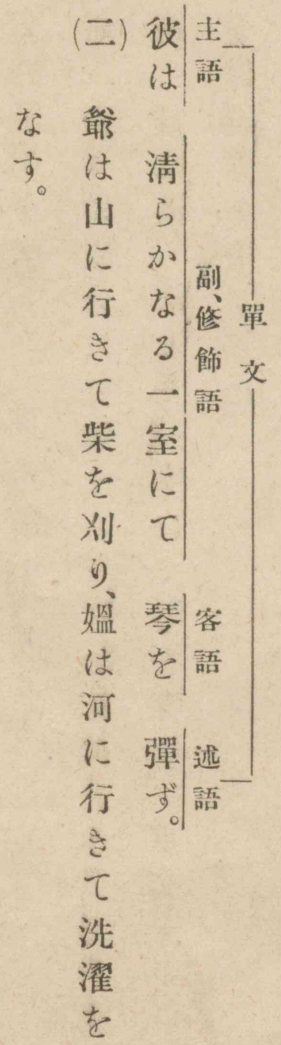 單文
主語 副、修飾語 客語 述語
彼は 淸らかなる一室にて 琴を 彈ず。
(二) 爺は山に行きて柴を刈り、媼は河に行きて洗濯を
なす。